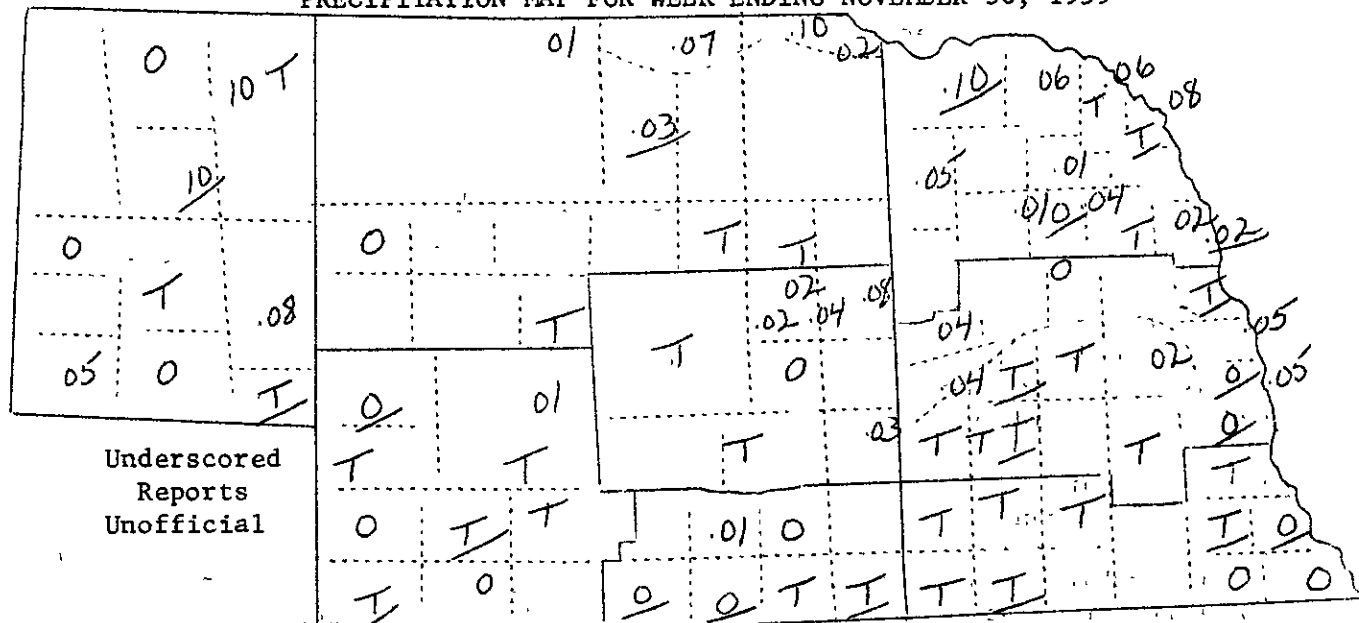 PRECIPITATION MAP FOR WEEK ENDING NOVEMBER 30, 1959
01 .07 .10
0 .02
10 T .10 06 06
T 08
.03 T
10 .05 .01
.010 .04
0 0 T T T 02 .02
T 02 .08 0 T
.08 T .02 .04 04 .05
T T 02
05 0 0 .04 T 0 .05
T 0 01 0
T T T .03 T T T T T
Underscored
Reports
Unofficial
0 T T .01 0 T T T T 0
T 0 0 0 T T T T 0 0